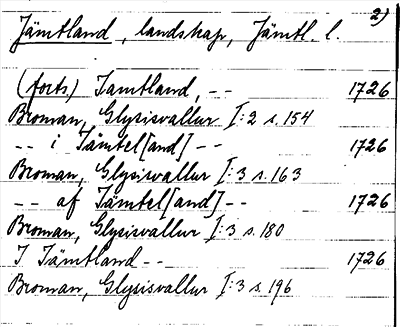 2)
Jämtland, landskap, Jämtl. l.
(forts.) Iamtland, -- 1726
Broman, Glysisvallur I:2 s. 154
-- i Iämtel[and] -- 1726
Broman, Glysisvallur I:3 s. 163
-- af Iämtel[and] -- 1726
Broman, Glysisvallur I:3 s. 180
I Iämtland -- 1726
Broman, Glysisvallur I:3 s. 196